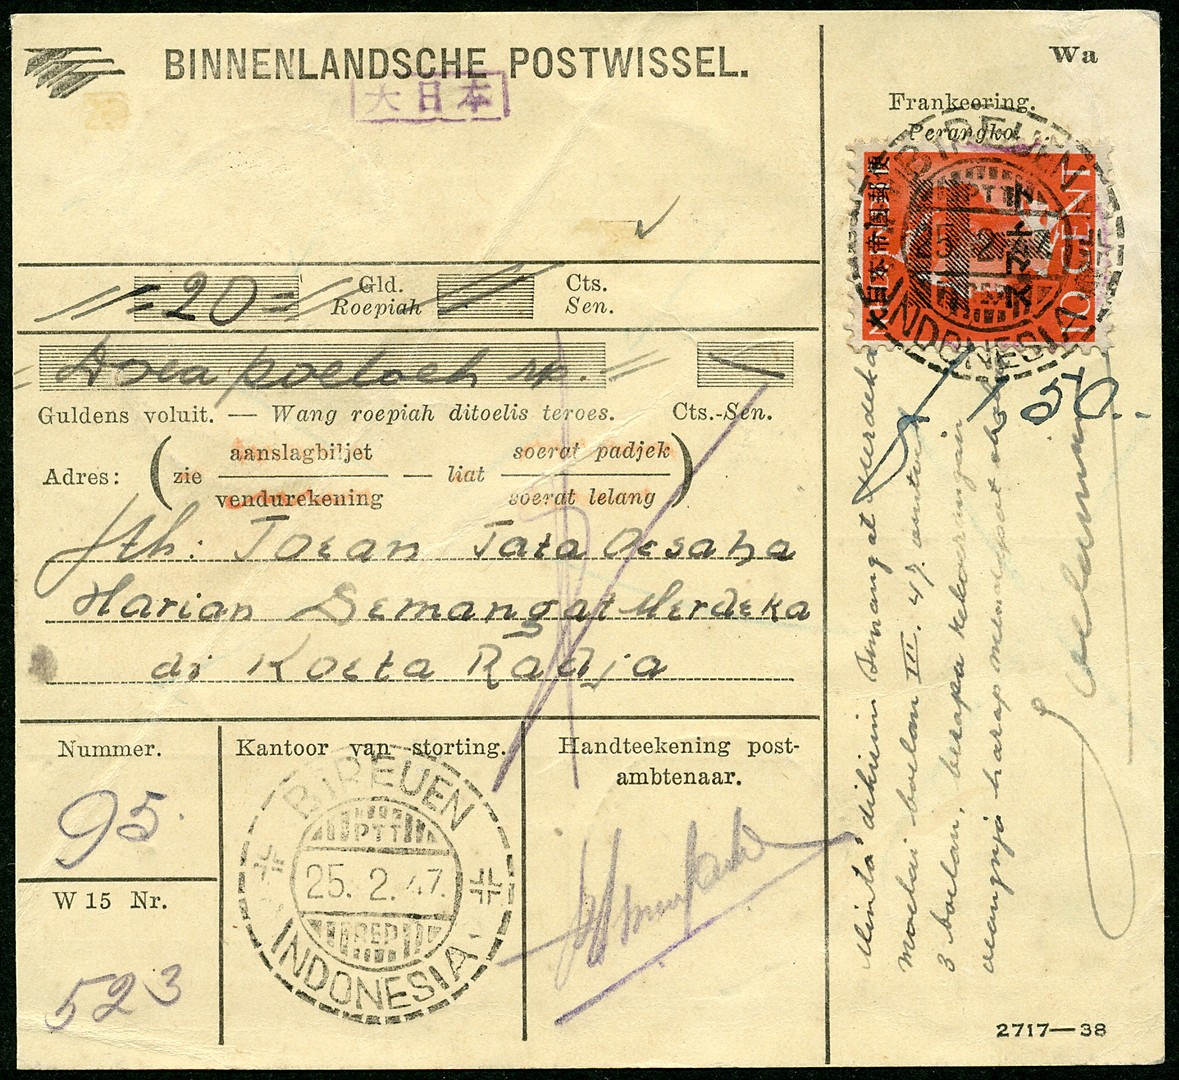 BINNENLANDSCHE POSTWISSEL.
大日本
Wa
Frankeering.
Perangko
BIREUEN
PTT
25. 2. 47.
REP
INDONESIA
大日本帝国郵便
スマトラ
10 CENT
= 20 = Gld. Cts.
Roepiah Sen.
Doea poeloeh rp.
Guldens voluit. — Wang roepiah ditoelis teroes. Cts.-Sen.
aanslagbiljet soerat padjek
Adres: ( zie — liat )
vendurekening soerat lelang
Jth: Toean Tata Oesaha
Harian Semangat Merdeka
di Koeta Radja
50.-
Minta dikirim Semangat Merdeka
moelai boelan III. 47. oentuk
3 boelan, berapa kekoerangan
wangnja harap mendapat
Nummer. Kantoor van storting. Handteekening post-
ambtenaar.
95.
W 15 Nr.
523
BIREUEN
PTT
25. 2. 47.
REP
INDONESIA
2717—38